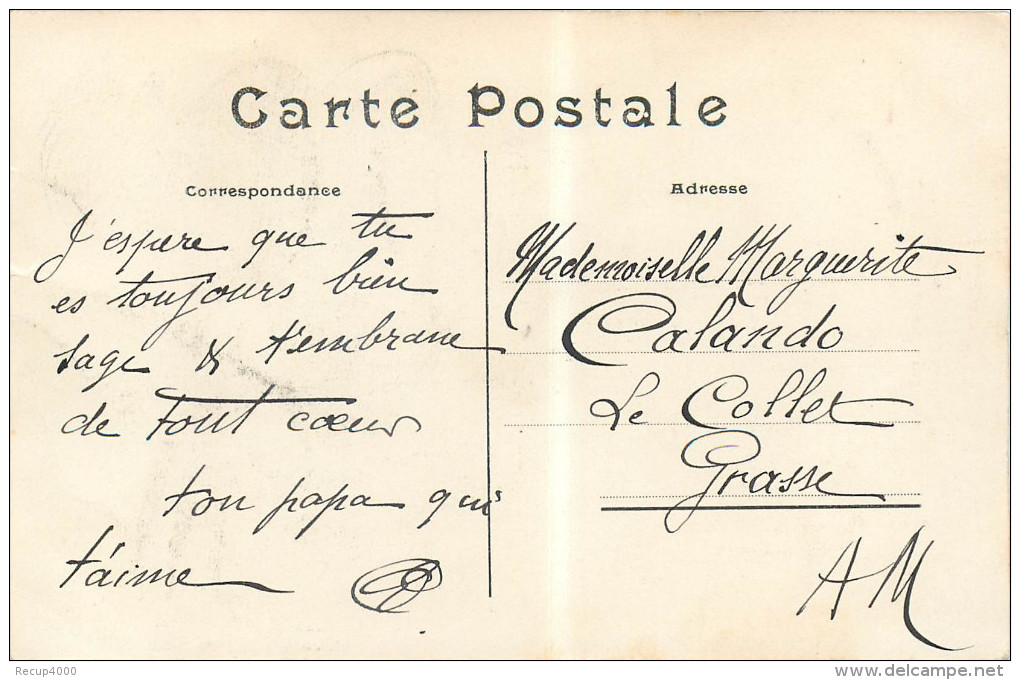 Carte Postale
Correspondance
J'espere que tu
es toujours bien
sage & t'embrasse
de tout cœur
ton papa qui
t'aime
Adresse
Mademoiselle Marguerite
Calando
Le Collet
Grasse
AM
Recup4000
www.delcampe.net